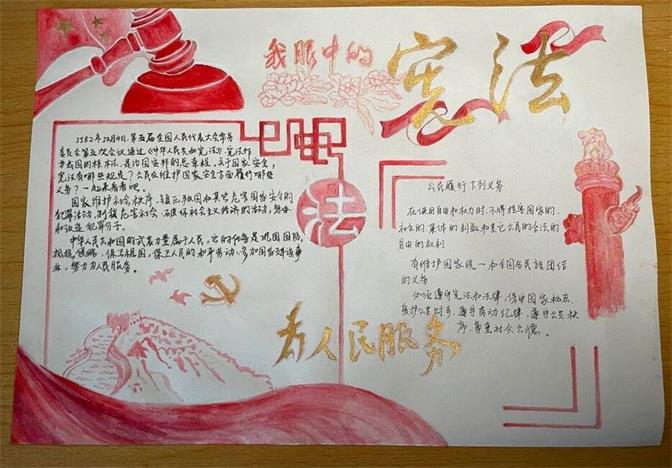 我眼中的
宪法
1982年12月4日，第五届全国人民代表大会常务
委员会第五次会议通过《中华人民共和宪法》，宪法作
为我国的根本法，是治国安邦的总章程，关于国家安全，
宪法有哪些规定？公民在维护国家安全方面履行哪些
义务？一起来看看吧。
国家维护社会秩序，镇压叛国和其它危害国家安全的
犯罪活动，制裁危害社会、破坏社会主义经济的活动，惩办
和改造犯罪分子。
中华人民共和国的武装力量属于人民，它的任务是巩固国防，
抵抗侵略，保卫祖国，保卫人民的和平劳动，参加国家建设事
业，努力为人民服务。
法
公民履行下列义务
在使用自由和权力时，不得损害国家的、
社会的、集体的利益和其它公民的合法的
自由的权利
有维护国家统一和全国各民族团结
的义务
必须遵守宪法和法律，保守国家秘密，
爱护公共财产，遵守劳动纪律，遵守公共秩
序，尊重社会公德。
为人民服务